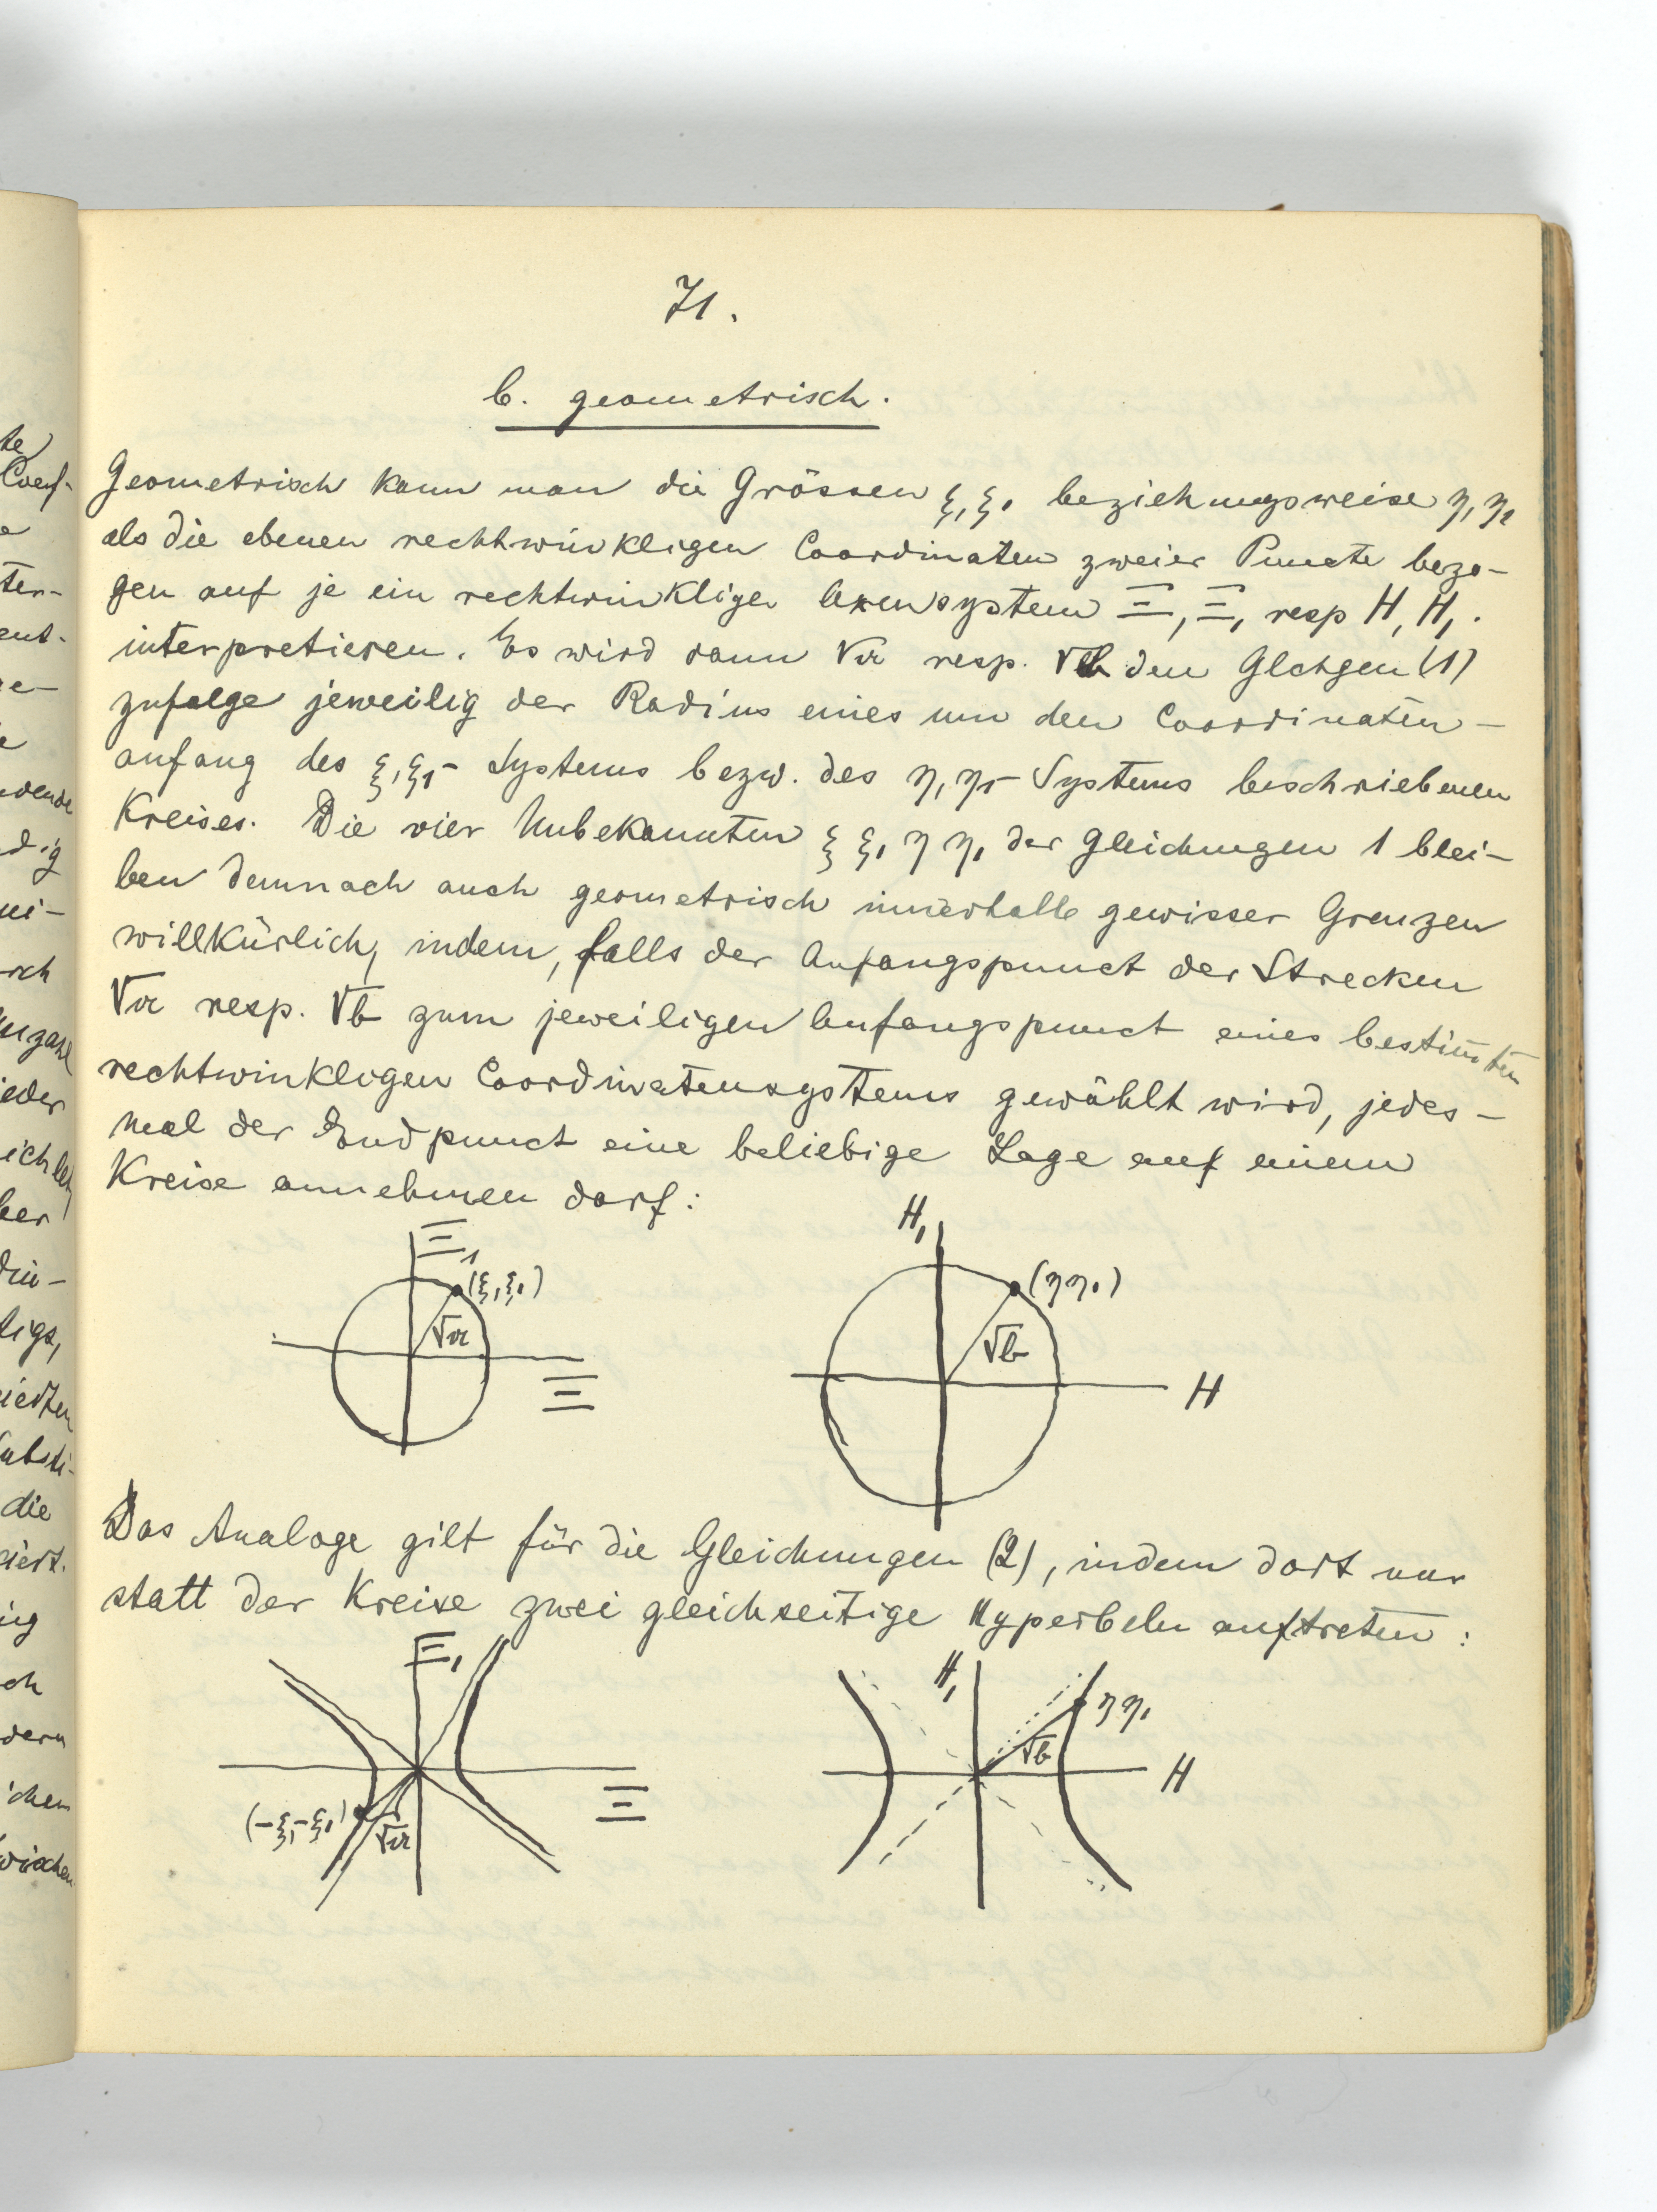 71.
b. geometrisch.
Geometrisch kann man die Grössen ξ, ξ₁ beziehungsweise η, η₁
als die ebenen rechtwinkligen Coordinaten zweier Puncte bezo-
gen auf je ein rechtwinkliges Axensystem Ξ, Ξ₁ resp H, H₁.
interpretieren. Es wird dann √a resp. √b den Glchgen (1)
zufolge jeweilig der Radius eines um den Coordinaten-
anfang des ξ, ξ₁- Systems bezw. des η, η₁- Systems beschriebenen
Kreises. Die vier Unbekannten ξ ξ₁ η η₁ der Gleichungen 1 blei-
ben demnach auch geometrisch innerhalb gewisser Grenzen
willkürlich, indem, falls der Anfangspunct der Strecken
√a resp. √b zum jeweiligen Anfangspunct eines bestim̄ten
rechtwinkligen Coordinatensystems gewählt wird, jedes-
mal der Endpunct eine beliebige Lage auf einem
Kreise annehmen darf:
Ξ₁
(ξ, ξ₁)
√a
Ξ
H₁
(η η₁)
√b
H
Das Analoge gilt für die Gleichungen (2), indem dort nur
statt der Kreise zwei gleichseitige Hyperbeln auftreten:
Ξ₁
Ξ
(-ξ, -ξ₁)
√a
H₁
η η₁
√b
H